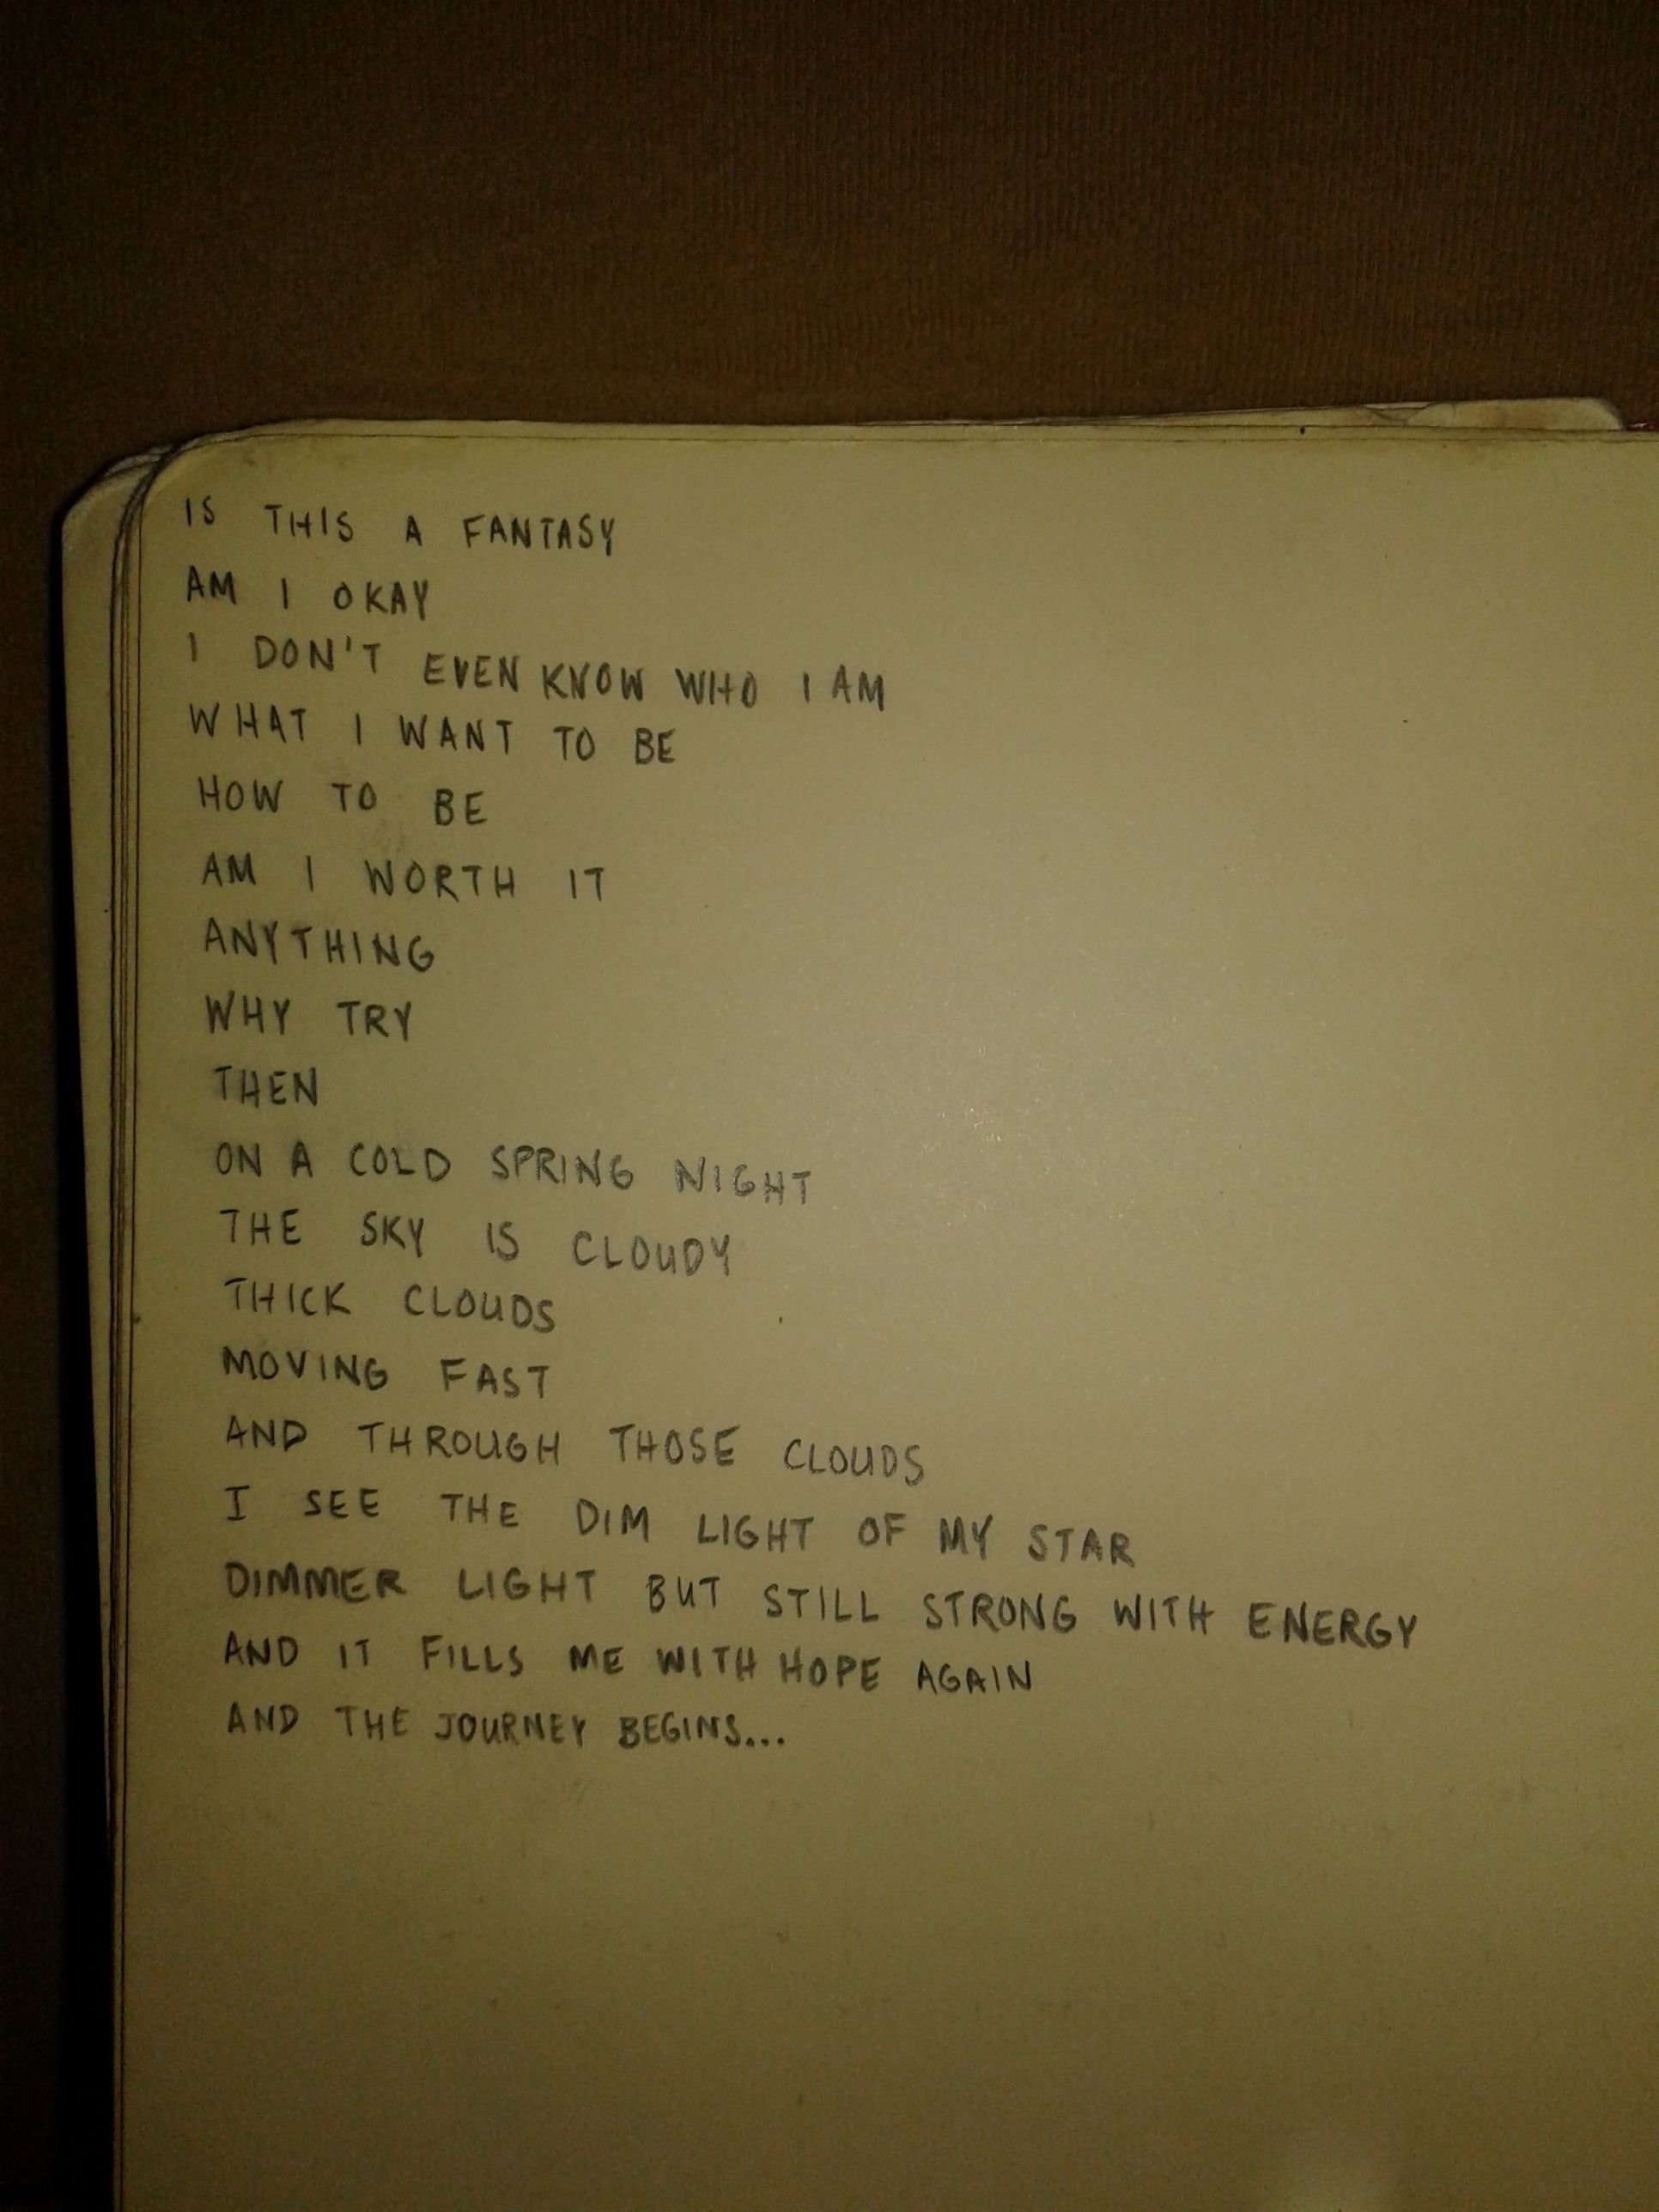 IS THIS A FANTASY
AM I OKAY
I DON'T EVEN KNOW WHO I AM
WHAT I WANT TO BE
HOW TO BE
AM I WORTH IT
ANYTHING
WHY TRY
THEN
ON A COLD SPRING NIGHT
THE SKY IS CLOUDY
THICK CLOUDS
MOVING FAST
AND THROUGH THOSE CLOUDS
I SEE THE DIM LIGHT OF MY STAR
DIMMER LIGHT BUT STILL STRONG WITH ENERGY
AND IT FILLS ME WITH HOPE AGAIN
AND THE JOURNEY BEGINS...